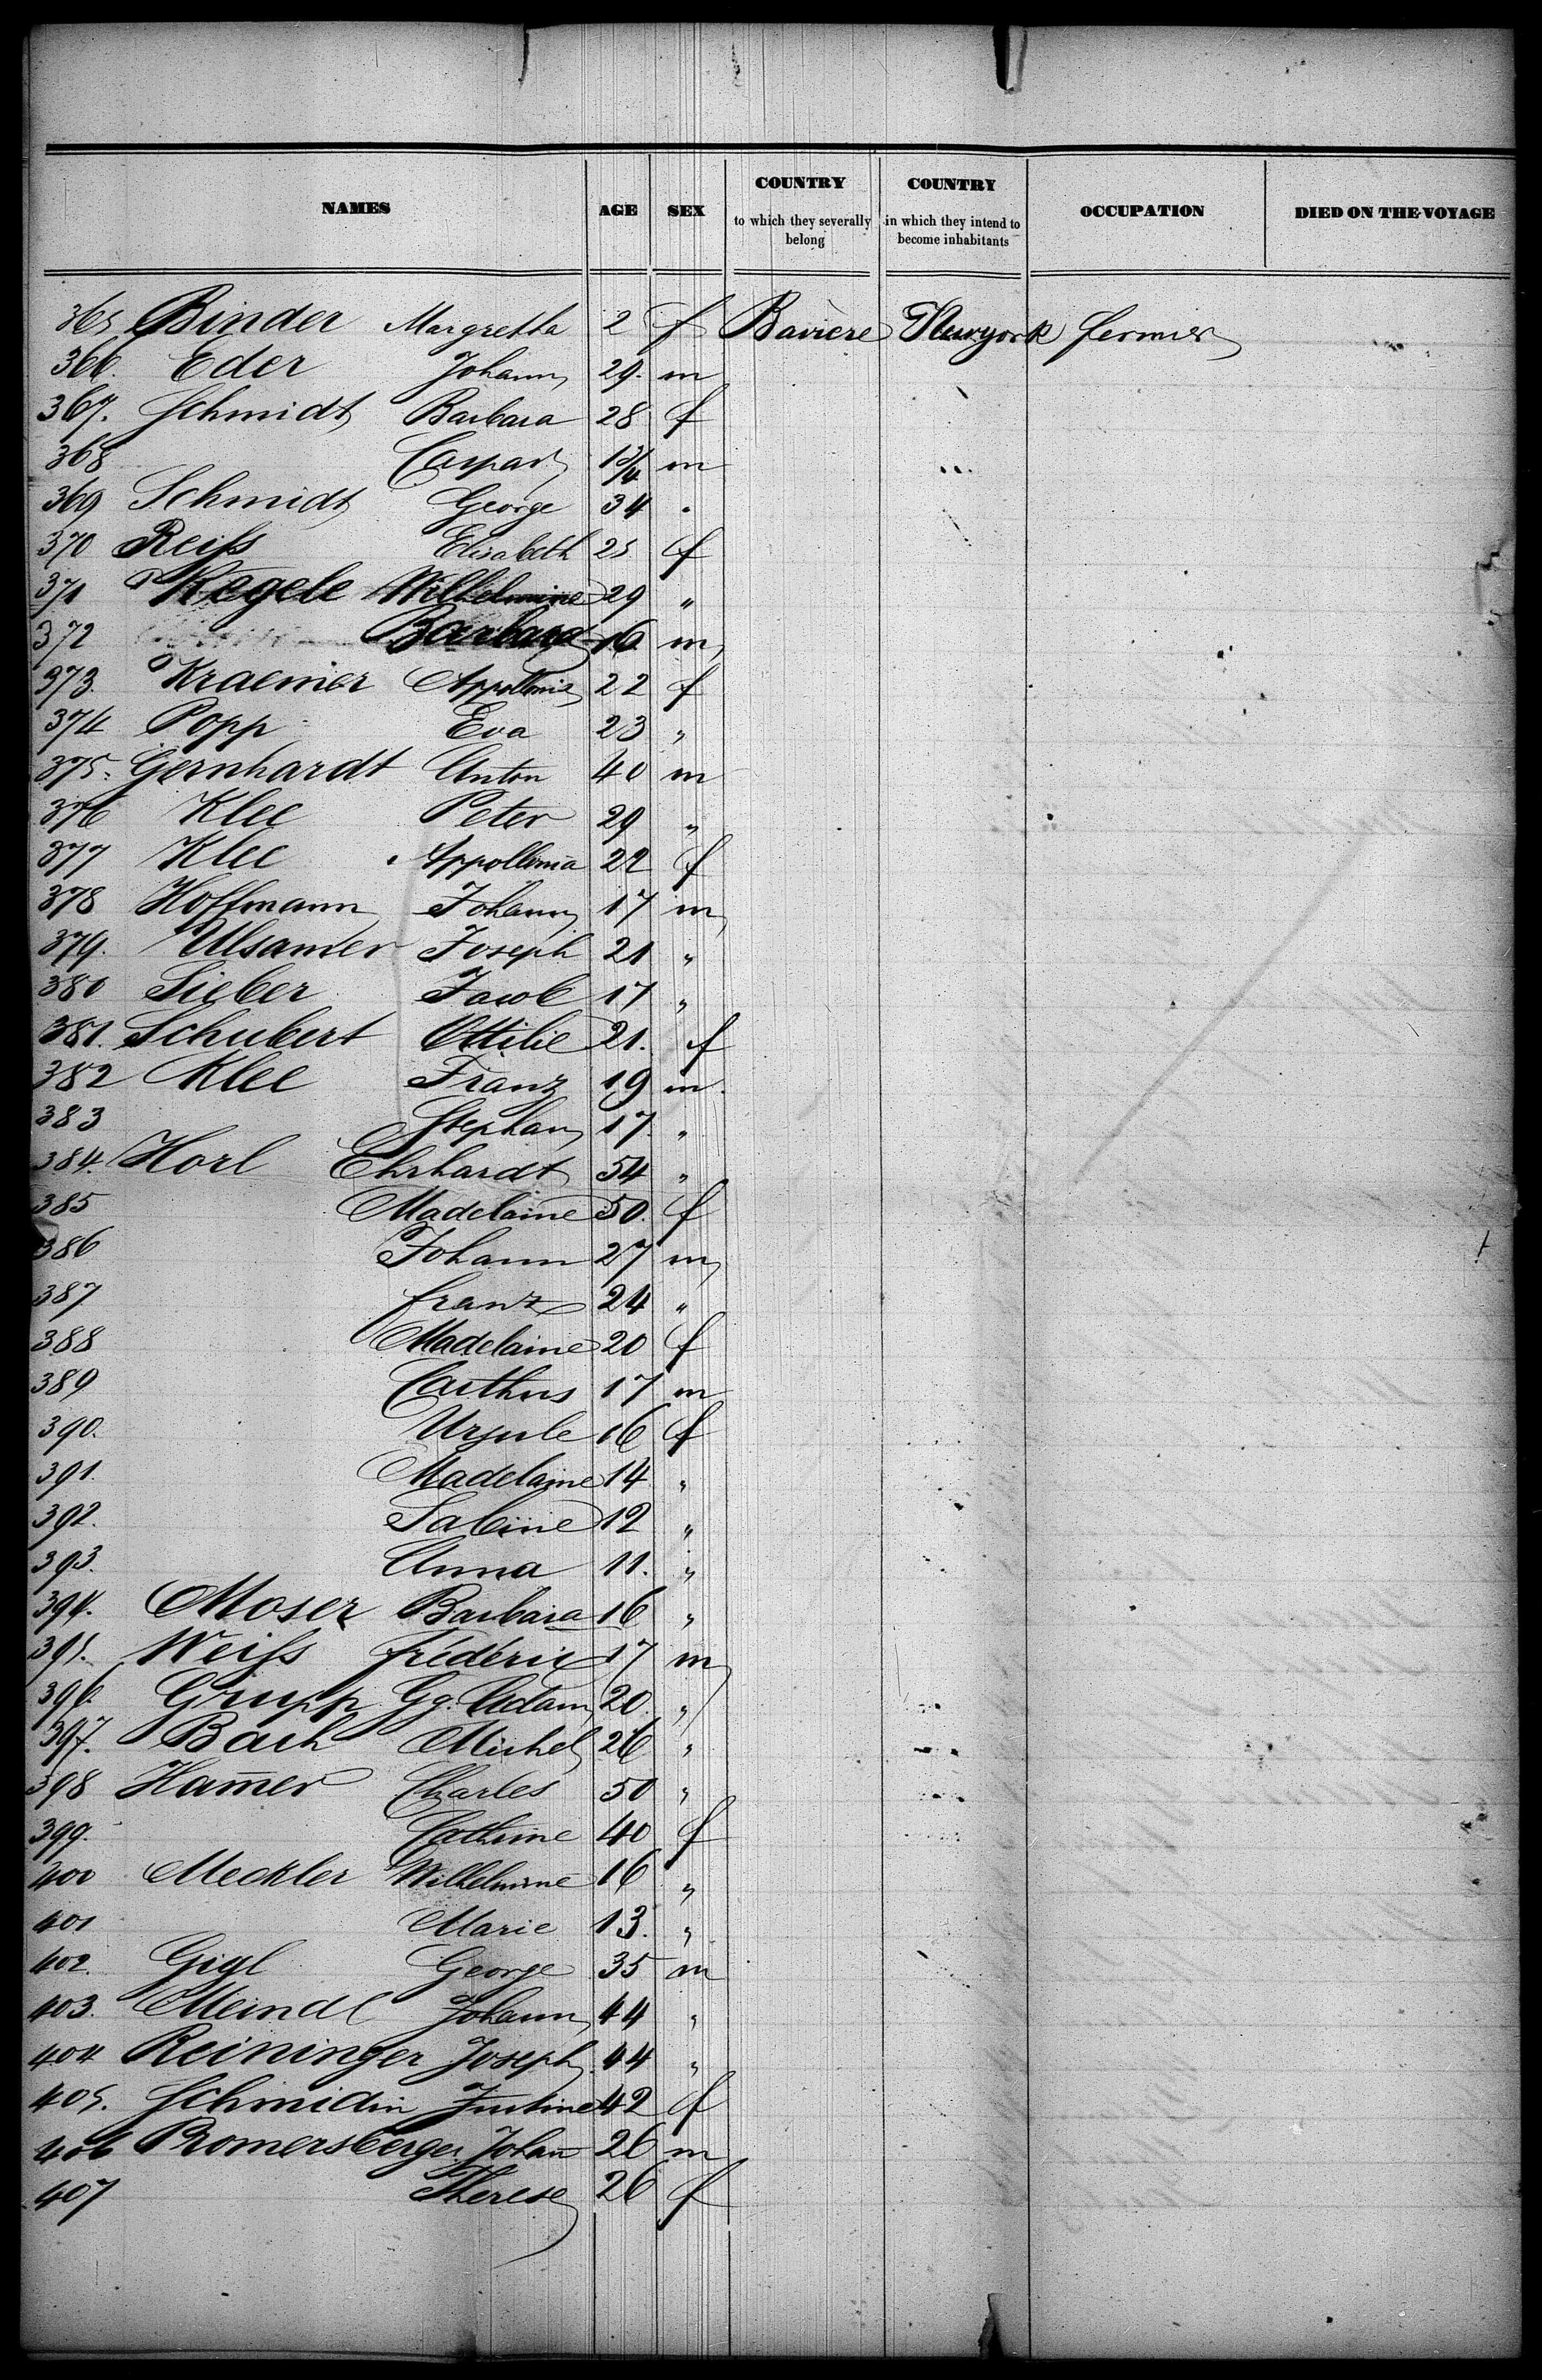 NAMES AGE SEX COUNTRY to which they severally belong COUNTRY in which they intend to become inhabitants OCCUPATION DIED ON THE VOYAGE
365 Binder Margretha 2 f Baviere Newyork fermier
366. Eder Johann 29. m
367. Schmidt Barbara 28 f
368 Caspar 1 3/4 m
369 Schmidt George 34 "
370 Reiß Elisabeth 25 f
371 Kegele Wilhelmine 29 "
372 Barbara 16 m
373. Kraemer Appollonia 22 f
374 Popp Eva 23 "
375. Gernhardt Anton 40 m
376 Klee Peter 29 "
377 Klee Appollonia 22 f
378 Hoffmann Johann 17 m
379. Ulsamer Joseph 21 "
380 Sieber Jacob 17 "
381. Schubert Ottilie 21. f
382 Klee Franz 19 m
383 Stephan 17. "
384. Horl Ehrhardt 54 "
385 Madelaine 50. f
386 Johann 27 m
387 franz 24 "
388 Madelaine 20 f
389 17 m
390. Ursule 16 f
391. Madelaine 14 "
392. Sabine 12 "
393. Anna 11. "
394. Moser Barbara 16 "
395. Weiß fréderic 17 m
396. Grupp Gg. Adam 20. "
397. Bach Michel 26 "
398 Ham̄er Charles 50 "
399. Cathrine 40 f
400 Meckler Wilhelmine 16 "
401 Marie 13. "
402. Gigl George 35 m
403. Meindl Johann 44 "
404 Reininger Joseph 44 "
405. Schmidin Justine 42 f
406 Promersberger Johan̄ 26 m
407 Therese 26 f